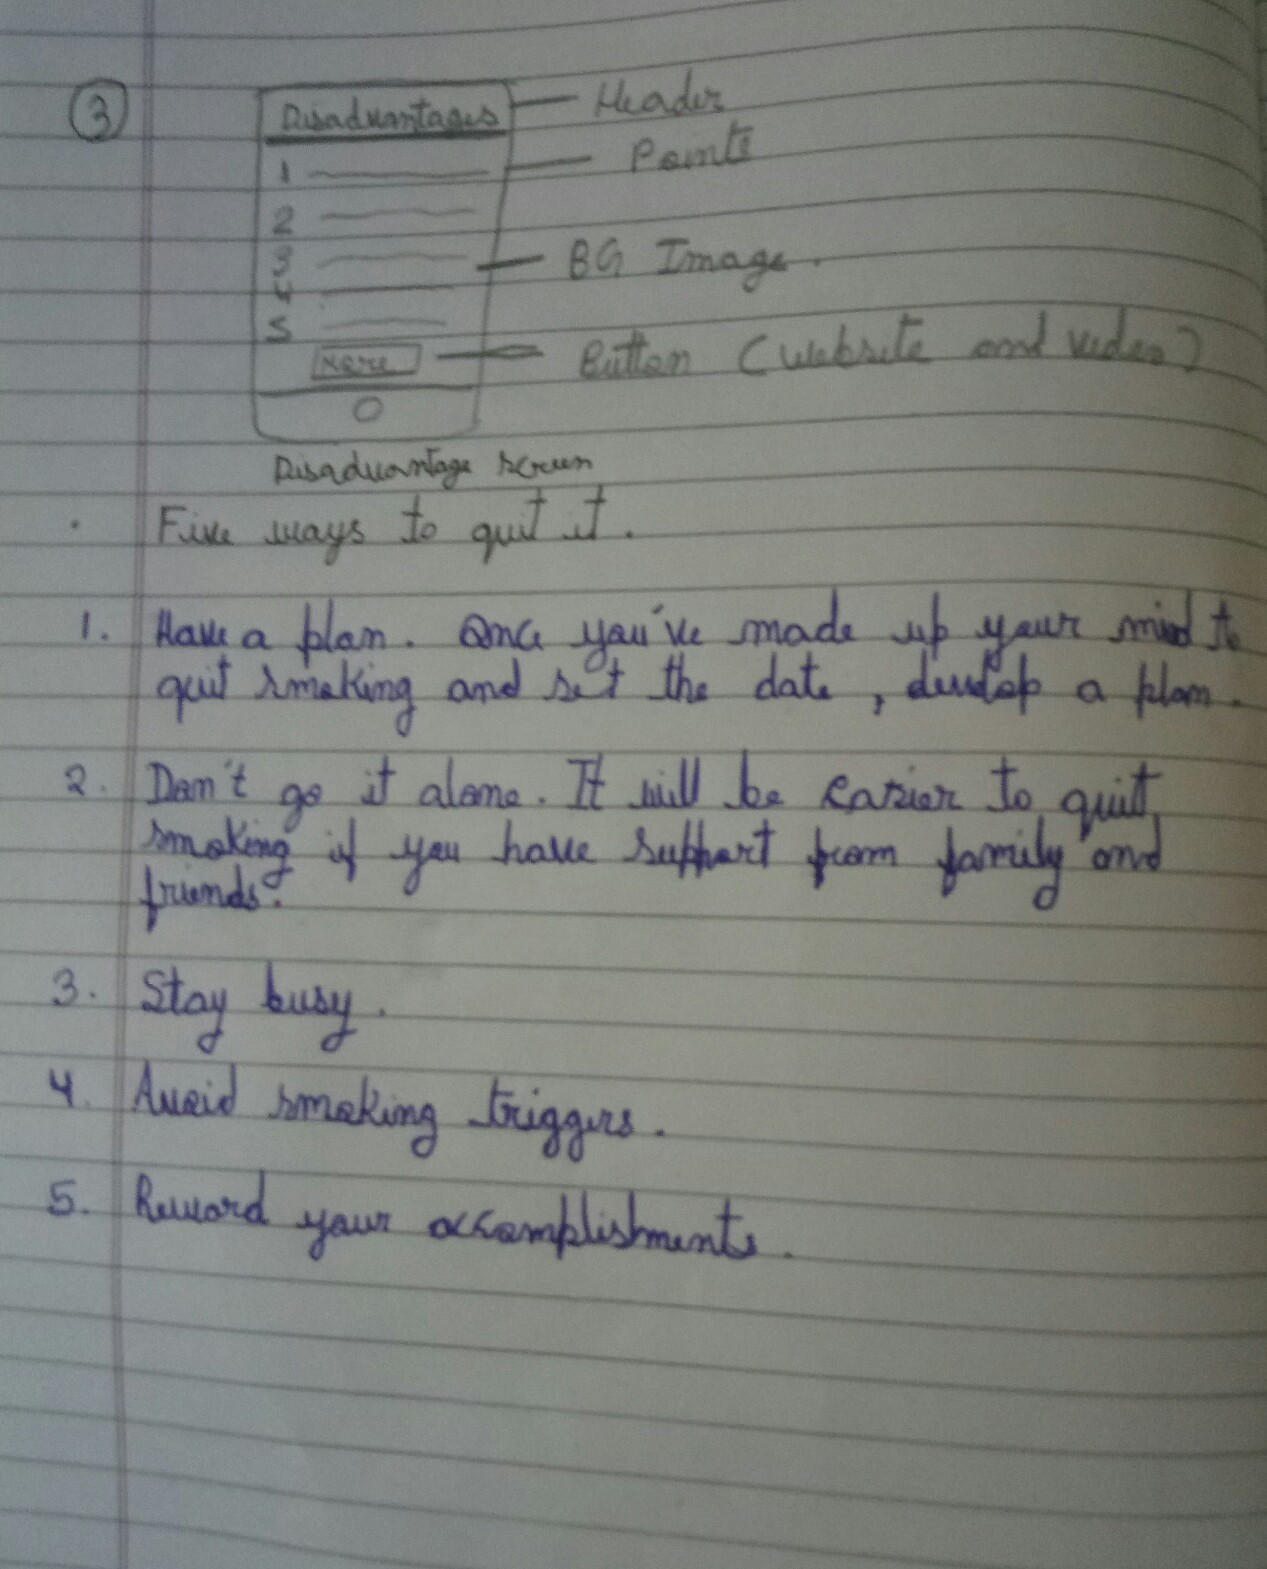 3
Disadvantages
Header
1
Points
2
3
BG Image.
4
5
More
Button (website and video)
Disadvantage screen
. Five ways to quit it.
1. Have a plan. Once you've made up your mind to
quit smoking and set the date, develop a plan.
2. Don't go it alone. It will be easier to quit
smoking if you have support from family and
friends.
3. Stay busy.
4. Avoid smoking triggers.
5. Reward your accomplishments.